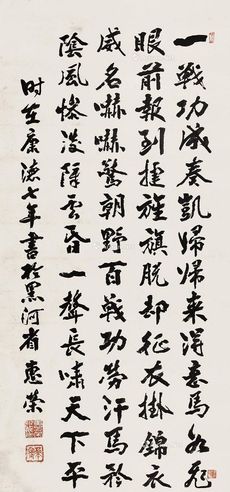 一戰功成奏凱歸歸来得意馬如飛
眼前報到捷旌旗脱却征衣掛錦衣
威名嚇嚇驚朝野百戰功勞汗馬
陰風惨淡陣雲昏一聲長嘯天下平
时在康德七年書於黑河省惠榮